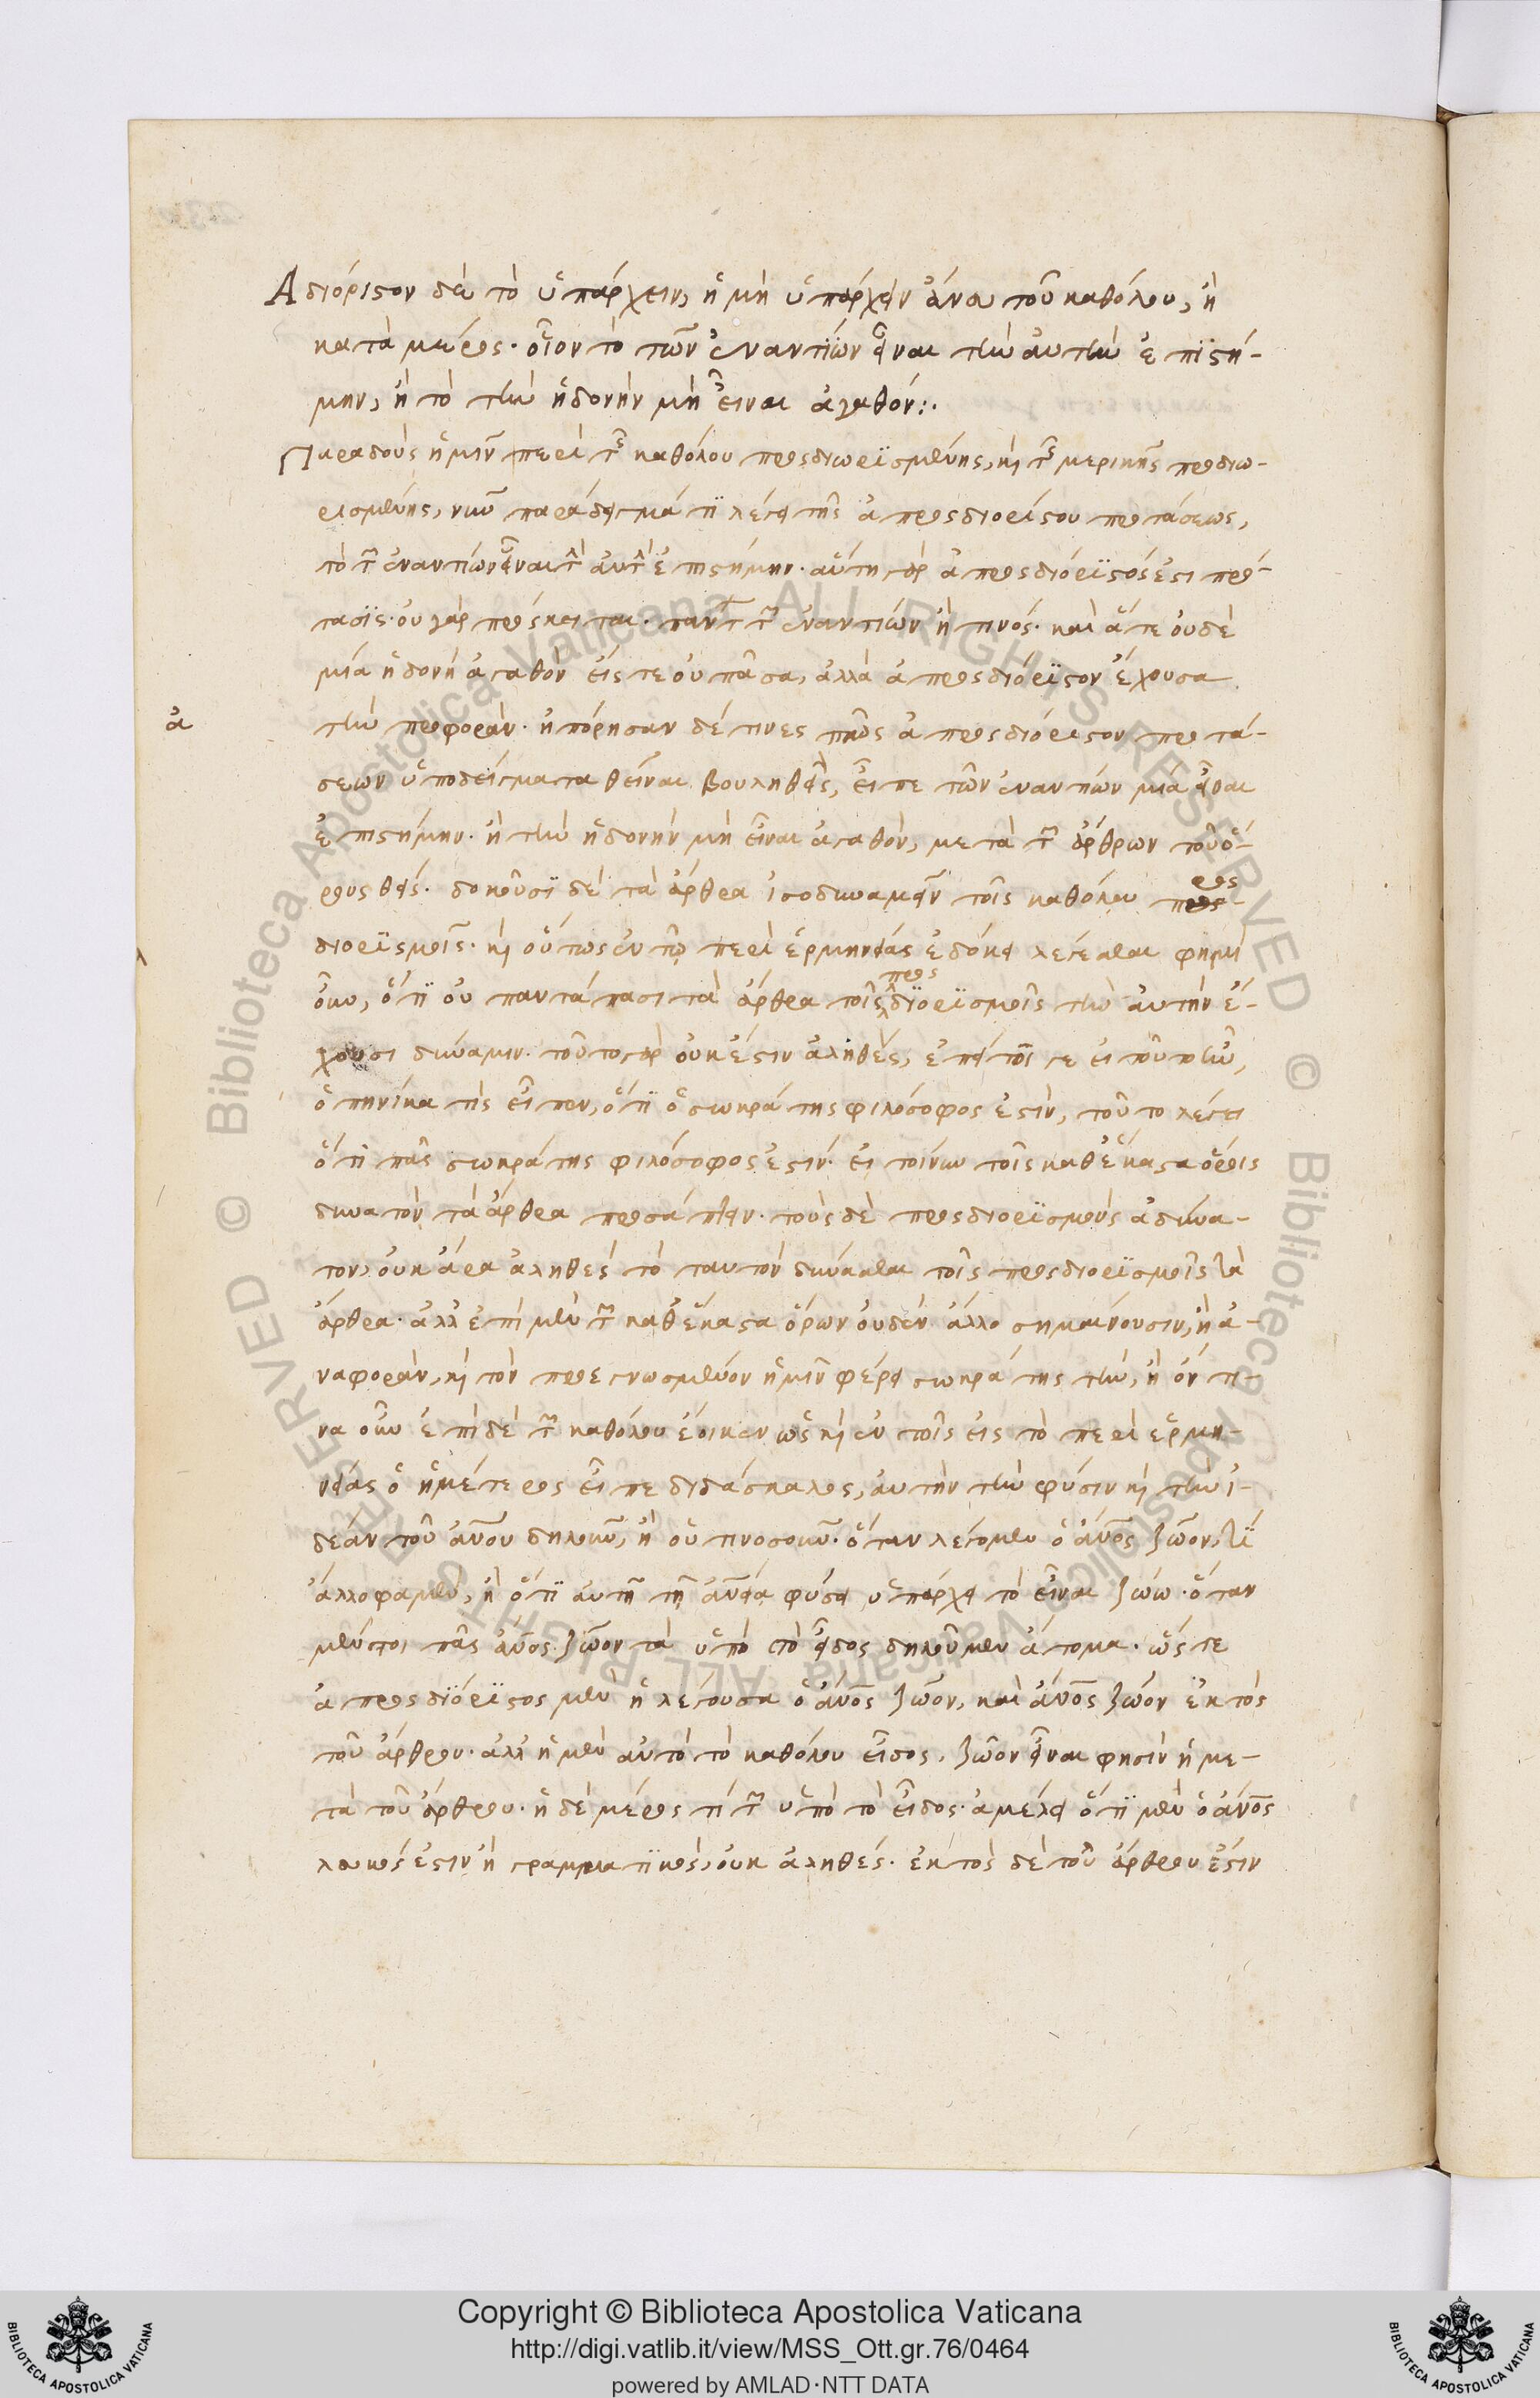 Ἀδιόριστον δὲ τὸ ὑπάρχειν, ἢ μὴ ὑπάρχειν ἄνευ τοῦ καθόλου, ἢ
κατὰ μέρος. οἷον τὸ τῶν ἐναντίων εἶναι τὴν αὐτὴν ἐπιστή-
μην, ἢ τὸ τὴν ἡδονὴν μὴ εἶναι ἀγαθόν:.
Παραδοὺς ἡμῖν περὶ τῆς καθόλου προσδιωρισμένης, καὶ τῆς μερικῆς προσδιω-
ρισμένης, νῦν παραδείγματι λέγει τῆς ἀπροσδιορίσου προτάσεως,
τὸ τῶν ἐναντίων εἶναι τὴν αὐτὴν ἐπιστήμην. αὕτη γὰρ ἀπροσδιόριστός ἐστι πρό-
τασις. οὐ γὰρ πρόσκειται. παντὸς τῶν ἐναντίων ἢ τινός. καὶ ἅτε οὐδὲ
μία ἡδονὴ ἀγαθὸν εἴς τε οὐ πᾶσα, ἀλλὰ ἀπροσδιόριστον ἔχουσα
ἀ
τὴν προφοράν. ἠπόρησαν δέ τινες πῶς ἀπροσδιόριστον προτά-
σεων ὑποδείγματα θεῖναι βουληθεὶς, εἶπε τῶν ἐναντίων μία εἶναι
ἐπιστήμην. ἢ τὴν ἡδονὴν μὴ εἶναι ἀγαθὸν, μετὰ τῶν ἄρθρων τοῦ ὅ-
ρους θείς. δοκοῦσι δὲ τὰ ἄρθρα ἰσοδυναμεῖν τοῖς καθόλου προς
διορισμοῖς. καὶ οὕτως ἐν τῷ περὶ ἑρμηνείας ἐδόκει λέγεσθαι φημὶ
οὖν, ὅτι οὐ παντάπασι τὰ ἄρθρα τοῖς προςδιορισμοῖς τὴν αὐτὴν ἔ-
χουσι δύναμιν. τοῦτο γὰρ οὐκ ἔστιν ἀληθές, ἐπείτοι γε εἰ τοῦτο ἦν,
ὁπηνίκα τὶς εἶπεν, ὅτι ὁ σωκράτης φιλόσοφος ἐστὶν, τοῦτο λέγει
ὅτι πᾶς σωκράτης φιλόσοφος ἐστίν. εἰ τοίνυν τοῖς καθ' ἕκαστα ὅροις
δυνατὸν τὰ ἄρθρα προσάπτειν. τοὺς δὲ προσδιορισμοὺς ἀδύνα-
τον, οὐκ ἄρα ἀληθὲς τὸ ταυτὸν δύνασθαι τοῖς προσδιορισμοῖς τὰ
ἄρθρα. ἀλλ' ἐπὶ μὲν τῶν καθ' ἕκαστα ὅρων οὐδὲν ἄλλο σημαίνουσιν, ἢ ἀ-
ναφορὰν, καὶ τὸν προεγνωσμένον ἡμῖν φέρει σωκράτης τὴν, ἢ ὅν τι-
να οὖν ἐπὶ δὲ τῶν καθόλου ἔοικεν ὡς καὶ ἐν τοῖς εἰς τὸ περὶ ἑρμη-
νείας ὁ ἡμέτερος εἶπε διδάσκαλος, αὐτὴν τὴν φύσιν καὶ τὴν ἰ-
δέαν τοῦ ἀνου δηλοῦν, ἢ οὗ τινοσοῦν. ὅταν λέγομεν ὁ ἄνος ζῶον, τί
ἄλλο φαμὲν, ἢ ὅτι αὐτῇ τῇ ἀνεία φύσει ὑπάρχει τὸ εἶναι ζώω. ὅταν
μέντοι πᾶς ἄνος ζῶον τὰ ὑπὸ τὸ εἶδος δηλοῦμεν ἄτομα. ὥστε
ἀπροσδιόριστος μὲν ἡ λέγουσα ὁ ἄνος ζῶον, καὶ ἄνος ζῶον ἐκτὸς
τοῦ ἄρθρου. ἀλλ' ἡ μὲν αὐτὸ τὸ καθόλου εἶδος, ζῶον εἶναι φησὶν ἡ με-
τὰ τοῦ ἄρθρου. ἡ δὲ μέρος τί τῶν ὑπὸ τὸ εἶδος. ἀμέλει ὅτι μὲν ὁ ἄνος
λευκός ἐστιν ἢ γραμματικὸς, οὐκ ἀληθές. ἐκτὸς δὲ τοῦ ἄρθρου ἔστιν
Copyright © Biblioteca Apostolica Vaticana
http://digi.vatlib.it/view/MSS_Ott.gr.76/0464
powered by AMLAD·NTT DATA